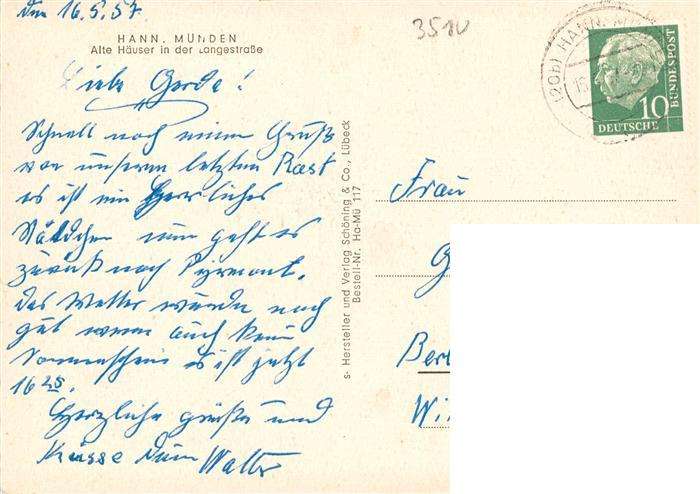 den 16.5.57.
3510
HANN. MÜNDEN
Alte Häuser in der Langestraße
Liebe Gerda!
Schnell noch einen Gruß
von unseren letzten Rast
es ist ein herrliches
Städtchen nun geht es
zurück nach Pyrmont.
Das Wetter wurde noch
gut wenn auch kein
Sonnenschein es ist jetzt
16 25.
Herzliche Grüße und
Küsse Dein Walter
s- Hersteller und Verlag Schöning & Co., Lübeck
Bestell-Nr. Ha-Mü 117
(20b) HANN.
10
DEUTSCHE
BUNDESPOST
Frau
G
Ber
Wi